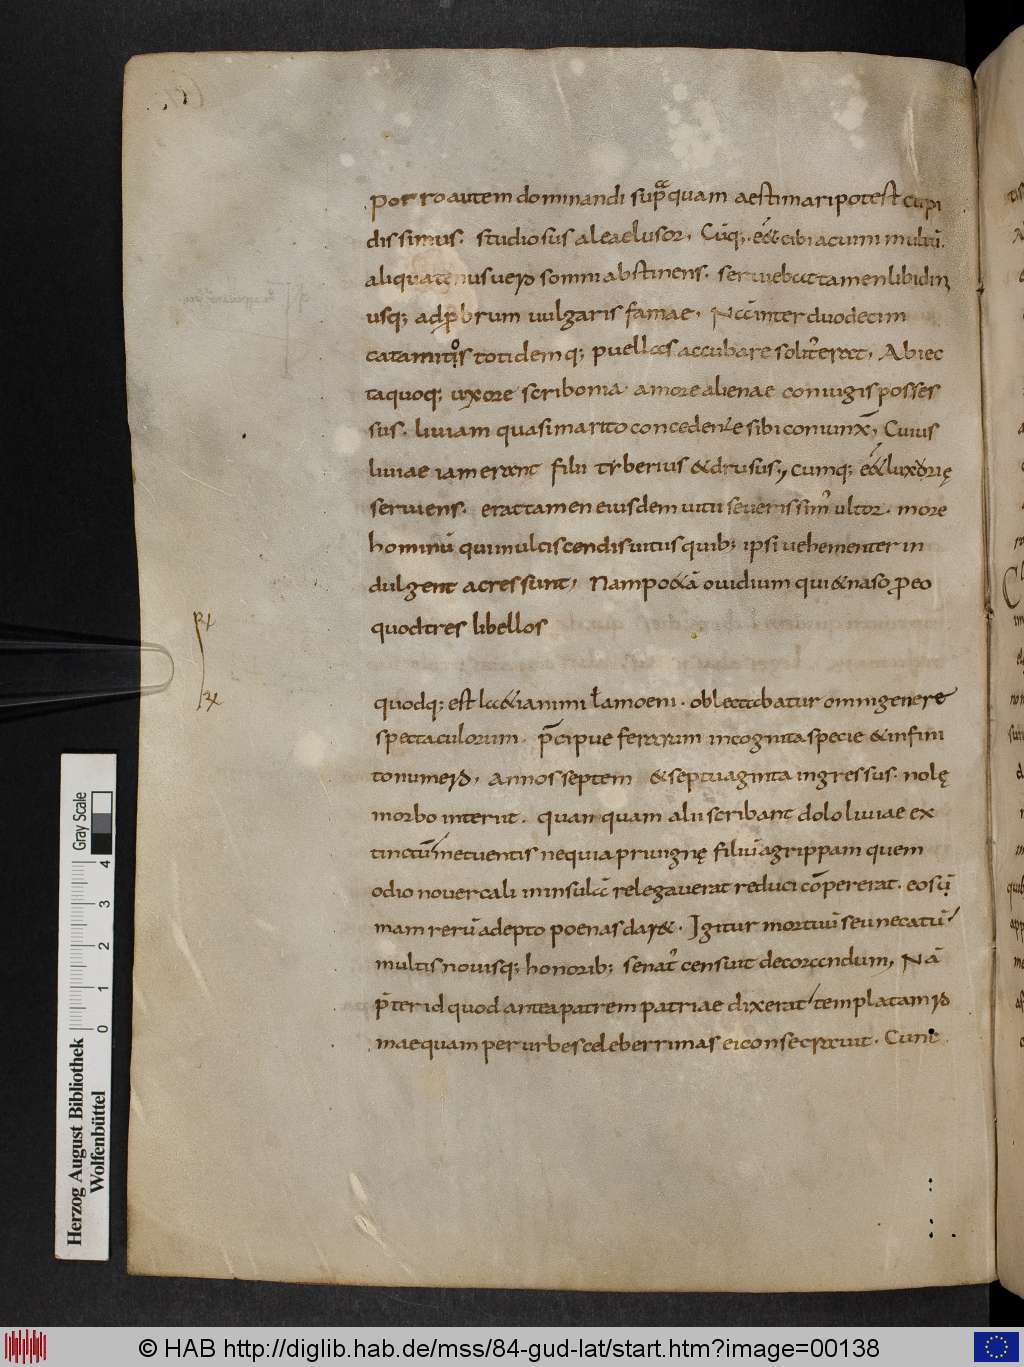 Porro autem dominandi sup̄quam aestimari potest cupi
dissimus. studiosus aleae lusor. Cūq; eēt cibi ac uini multū
aliquatenus uero somni abstinens. seruiebat tamen libidini
usq; ad p̱brum uulgaris famae. Nā inter duodecim
catamitos totidemq; puellas accubare solitꝰ erat. Abiec
taquoq; uxore scribonia amore alienae coniugis posses
sus. liuiam quasi marito concedente sibi coniunx̄. Cuius
liuiae iam erant filii tyberius & drusus. cumq; eēt luxorię
seruiens. erat tamen eiusdem uitii seuerissimꝰ ultor. more
hominū qui in ulciscendis uitiis quib; ipsi uehementer in
dulgent acres sunt. Nam po&ā ouidium qui & naso ꝓ eo
quod tres libellos
quodq; est la&i animi ł amoeni. oblectabatur omni genere
spectaculorum. p̄cipue ferarum incognita specie & infini
to numero. annos septem & septuaginta ingressus. nolę
morbo interiit. quanquam alii scribant dolo liuiae ex
tinctū metuentis ne quia priuignę filiū agrippam quem
odio nouercali in insulā relegauerat reduci cōpererat. eo sū
mam rerū adepto poenas dar&. Igitur mortuū seu necatū
multis nouisq; honorib; senatꝰ censuit decorandum. Nā
p̄ter id quod antea patrem patriae dixerat templa tam ro
mae quam per urbes celeberrimas ei consecrauit. Cunt
Herzog August Bibliothek
Wolfenbüttel
Gray Scale
0 1 2 3 4
© HAB http://diglib.hab.de/mss/84-gud-lat/start.htm?image=00138